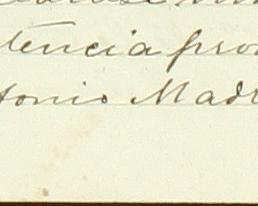 tencia pro
tonio Mad